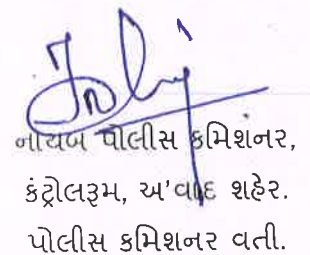 નાયબ પોલીસ કમિશનર,
કંટ્રોલરૂમ, અ'વાદ શહેર.
પોલીસ કમિશનર વતી.